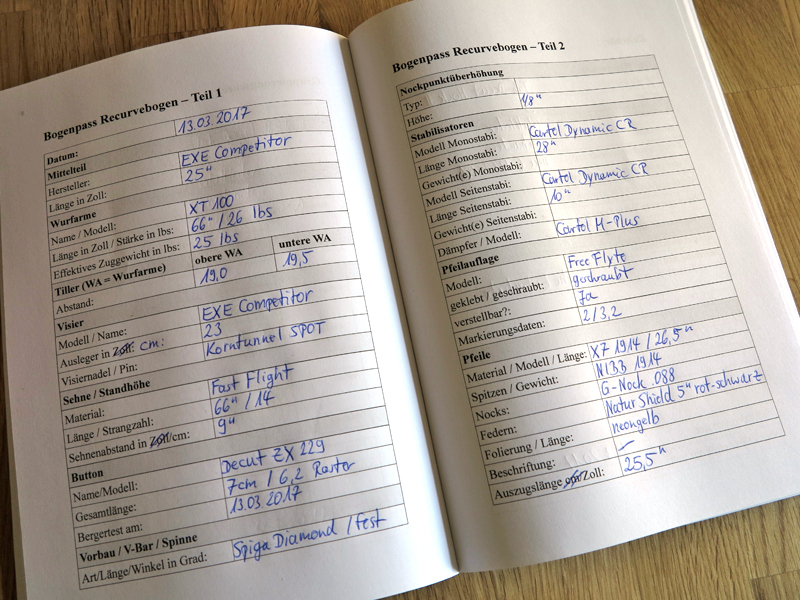 Bogenpass Recurvebogen – Teil 1
Datum: 13.03.2017
Mittelteil
Hersteller: EXE Competitor
Länge in Zoll: 25"
Wurfarme
Name / Modell: XT 100
Länge in Zoll / Stärke in lbs: 66" / 26 lbs
Effektives Zuggewicht in lbs: 25 lbs
Tiller (WA = Wurfarme) obere WA untere WA
Abstand: 19,0 19,5
Visier
Modell / Name: EXE Competitor
Ausleger in Zoll: cm: 23
Visiernadel / Pin: Korntunnel SPOT
Sehne / Standhöhe
Material: Fast Flight
Länge / Strangzahl: 66" / 14
Sehnenabstand in Zoll/cm: 9"
Button
Name/Modell: Decut ZX 229
Gesamtlänge: 7cm / 6,2 Raster
Bergertest am: 13.03 2017
Vorbau / V-Bar / Spinne
Art/Länge/Winkel in Grad: Spiga Diamond / fest
Bogenpass Recurvebogen – Teil 2
Nockpunktüberhöhung
Typ:
Höhe: 1/8"
Stabilisatoren
Modell Monostabi: Cartel Dynamic CR
Länge Monostabi: 28"
Gewicht(e) Monostabi:
Modell Seitenstabi: Cartel Dynamic CR
Länge Seitenstabi: 10"
Gewicht(e) Seitenstabi:
Dämpfer / Modell: Cartel M-Plus
Pfeilauflage
Modell: Free Flyte
geklebt / geschraubt: geschraubt
verstellbar?: Ja
Markierungsdaten: 2 / 3,2
Pfeile
Material / Modell / Länge: X7 1914 / 26,5"
Spitzen / Gewicht: NIBB 1914
Nocks: G-Nock .088
Federn: Natur Shield 5" rot-schwarz
Folierung / Länge: neongelb
Beschriftung: –
Auszugslänge cm/Zoll: 25,5"